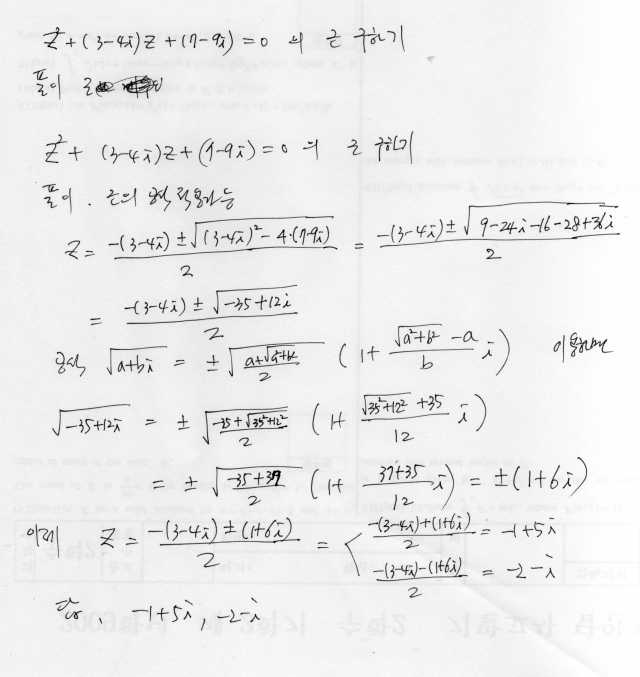 z²+(3-4i)z+(7-9i)=0 의 근 구하기
풀이
z²+ (3-4i)z+(7-9i)=0 의 근 구하기
풀이. 근의 공식 적용가능
z = \frac{-(3-4i) ± \sqrt{(3-4i)²-4·(7-9i)}}{2} = \frac{-(3-4i) ± \sqrt{9-24i-16-28+36i}}{2}
= \frac{-(3-4i) ± \sqrt{-35+12i}}{2}
공식 \sqrt{a+bi} = ± \sqrt{\frac{a+\sqrt{a²+b²}}{2}} (1+ \frac{\sqrt{a²+b²}-a}{b} i) 이용하면
\sqrt{-35+12i} = ± \sqrt{\frac{-35+\sqrt{35²+12²}}{2}} (1+ \frac{\sqrt{35²+12²}+35}{12} i)
= ± \sqrt{\frac{-35+37}{2}} (1+ \frac{37+35}{12} i) = ±(1+6i)
이때 z = \frac{-(3-4i)±(1+6i)}{2} = < \frac{-(3-4i)+(1+6i)}{2} = -1+5i
\frac{-(3-4i)-(1+6i)}{2} = -2-i
-1+5i, -2-i